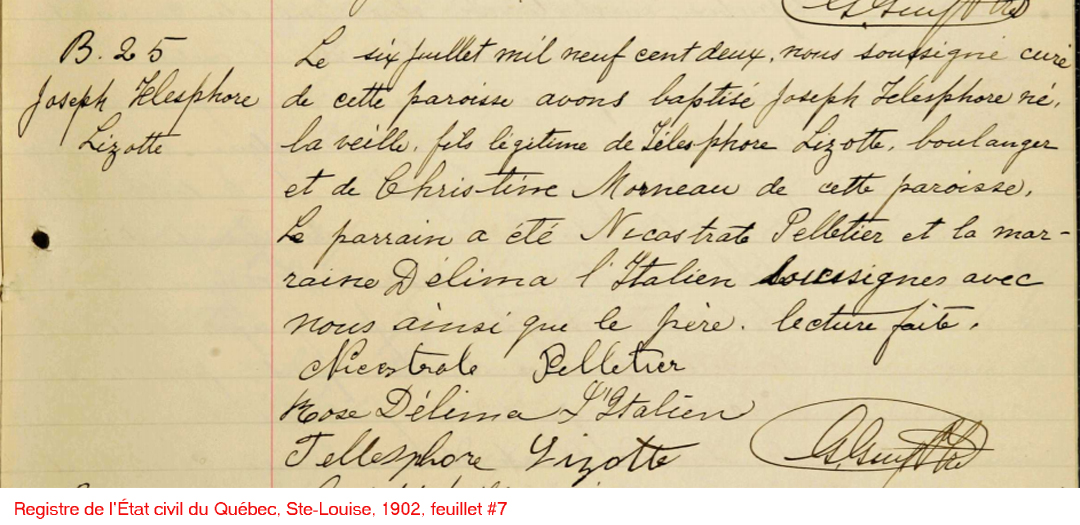 B. 25
Joseph Telesphore
Lizotte
Le six juillet mil neuf cent deux, nous soussigné curé
de cette paroisse avons baptisé Joseph Telesphore né,
la veille, fils légitime de Télesphore Lizotte, boulanger
et de Christine Morneau de cette paroisse.
Le parrain a été Nicostrate Pelletier et la mar-
raine Délima l'Italien soussignes avec
nous ainsi que le père. lecture faite.
Nicostrate Pelletier
Rose Délima L'Italien
Tellesphore Lizotte
Registre de l'État civil du Québec, Ste-Louise, 1902, feuillet #7